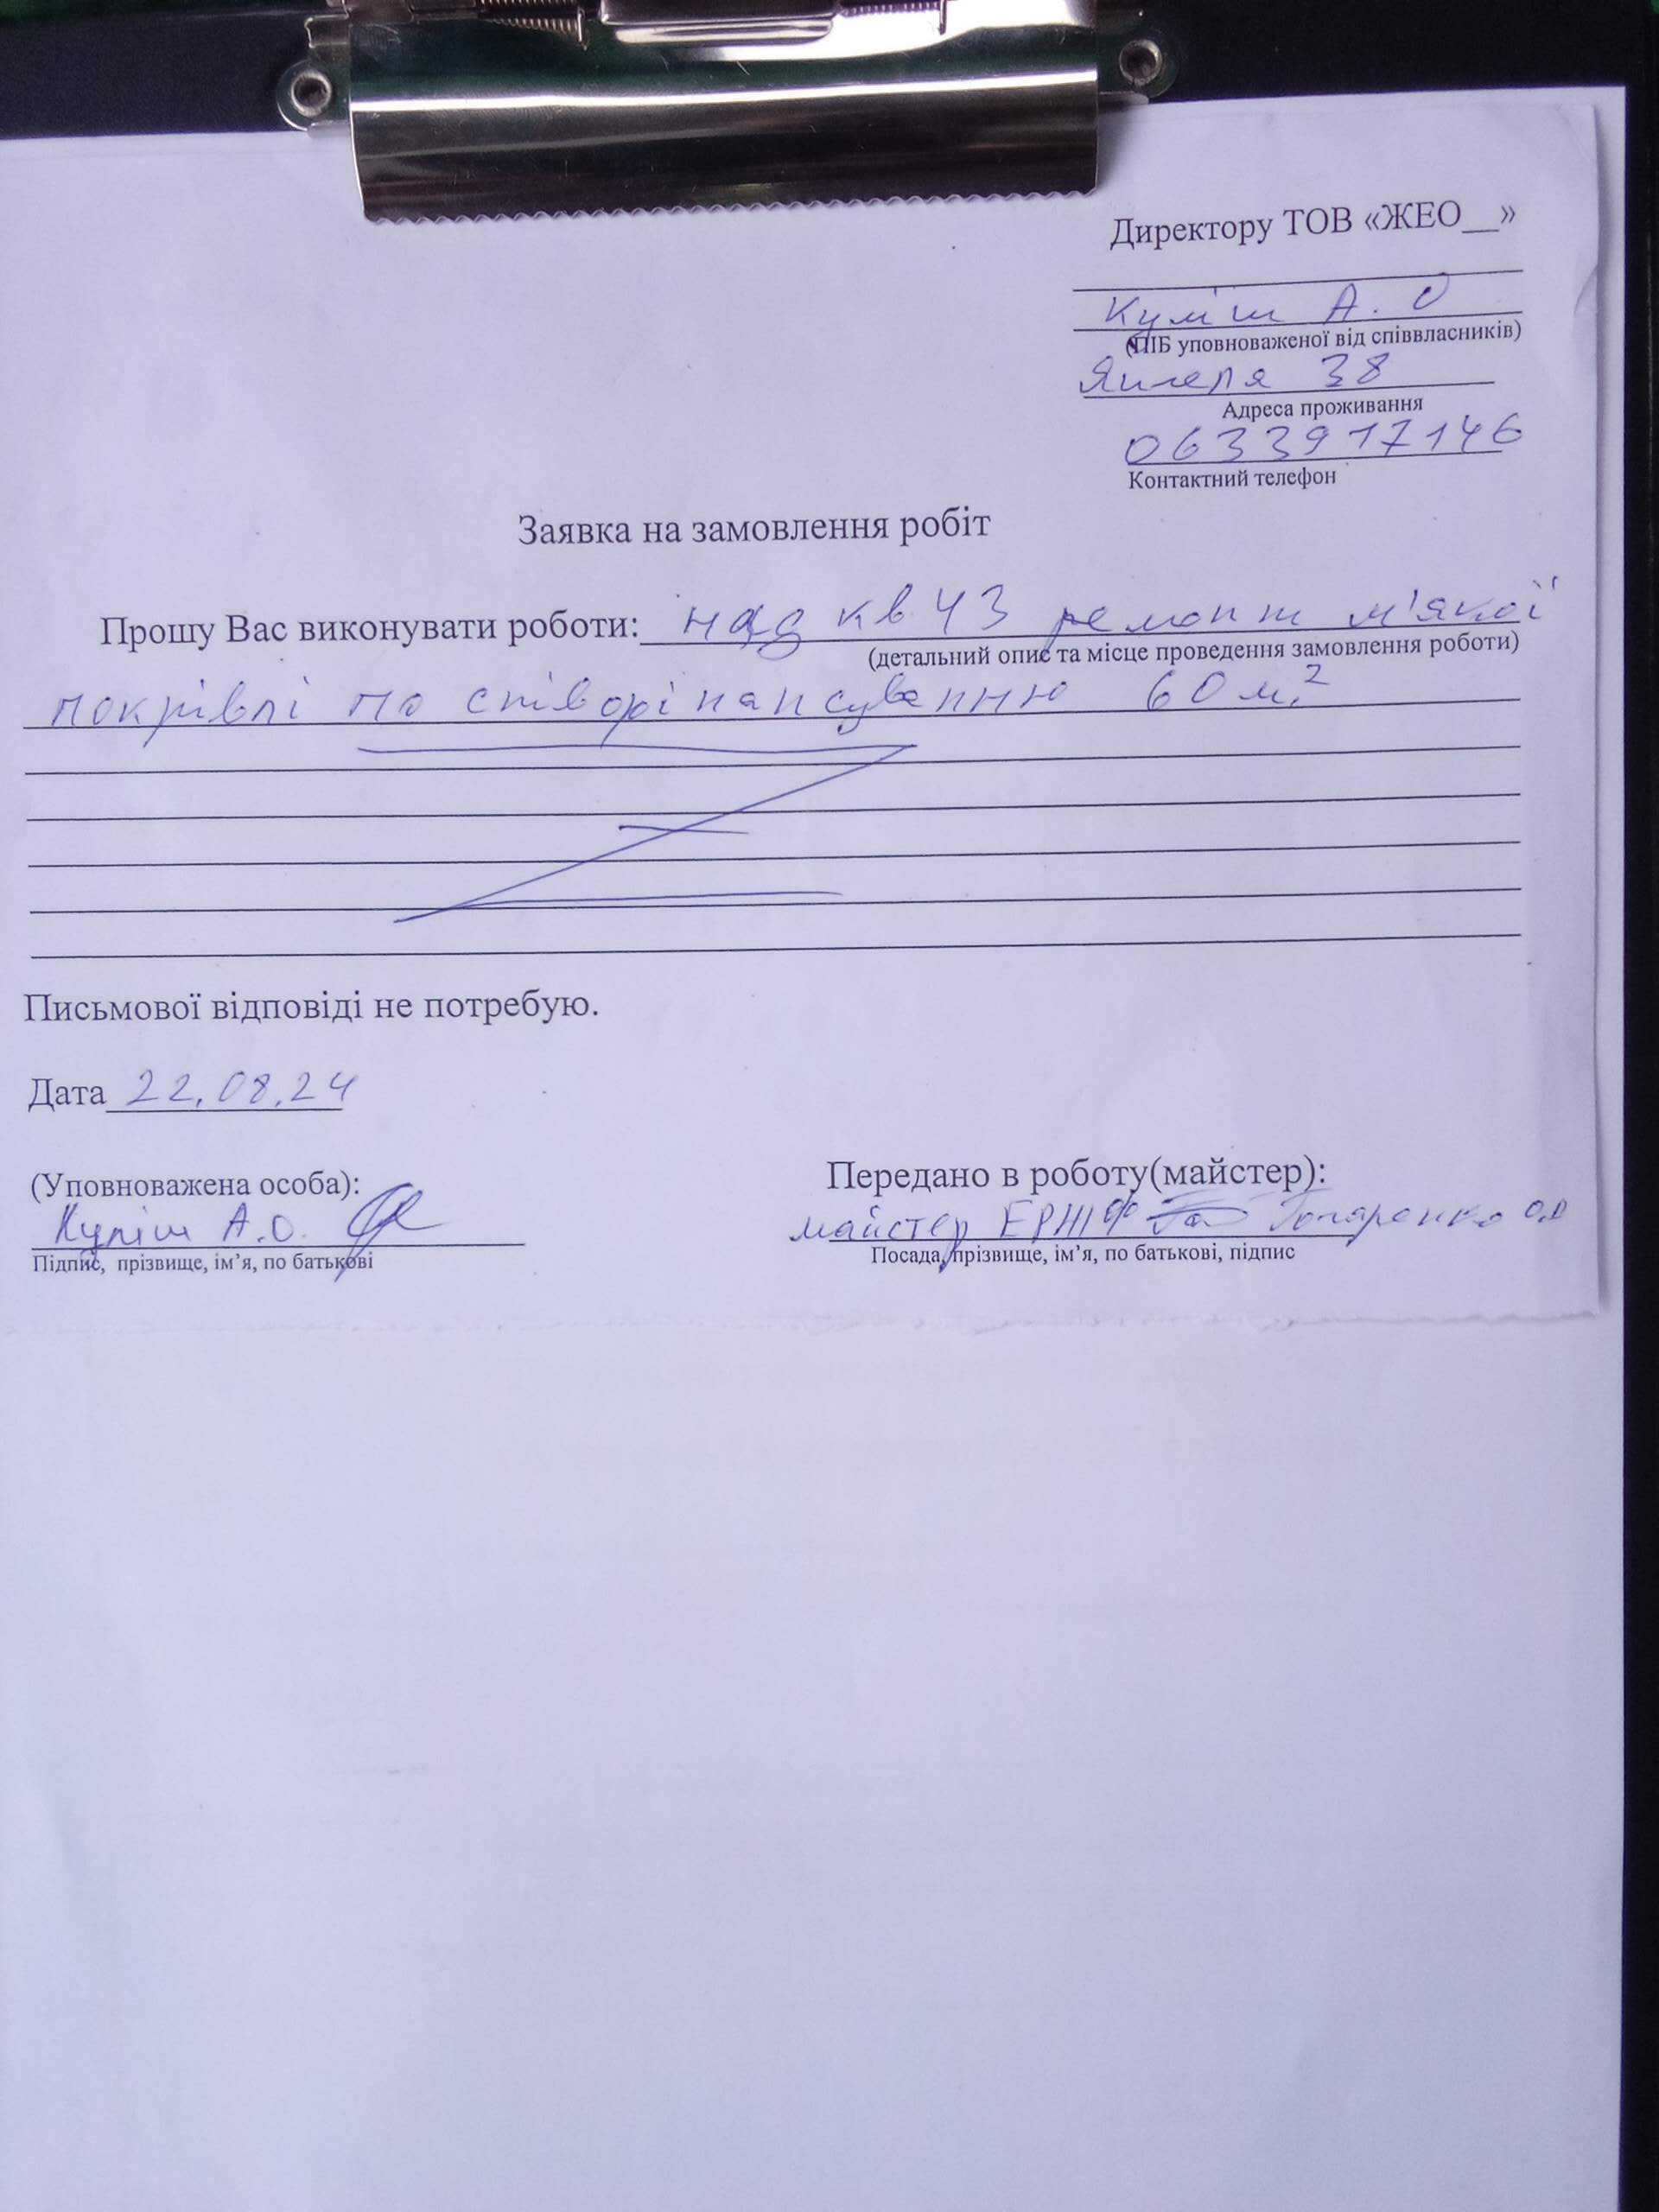 Директору ТОВ «ЖЕО__»
Куліш А. О
(ПІБ уповноваженої від співвласників)
Янгеля 38
Адреса проживання
0633917146
Контактний телефон
Заявка на замовлення робіт
Прошу Вас виконувати роботи: над кв 43 ремонт м'якої
(детальний опис та місце проведення замовлення роботи)
покрівлі по співфінансуванню 60 м.²
Письмової відповіді не потребую.
Дата 22.08.24
(Уповноважена особа):
Куліш А.О.
Підпис, прізвище, ім’я, по батькові
Передано в роботу(майстер):
майстер ЕРЖФ Гончаренко О.О
Посада, прізвище, ім’я, по батькові, підпис